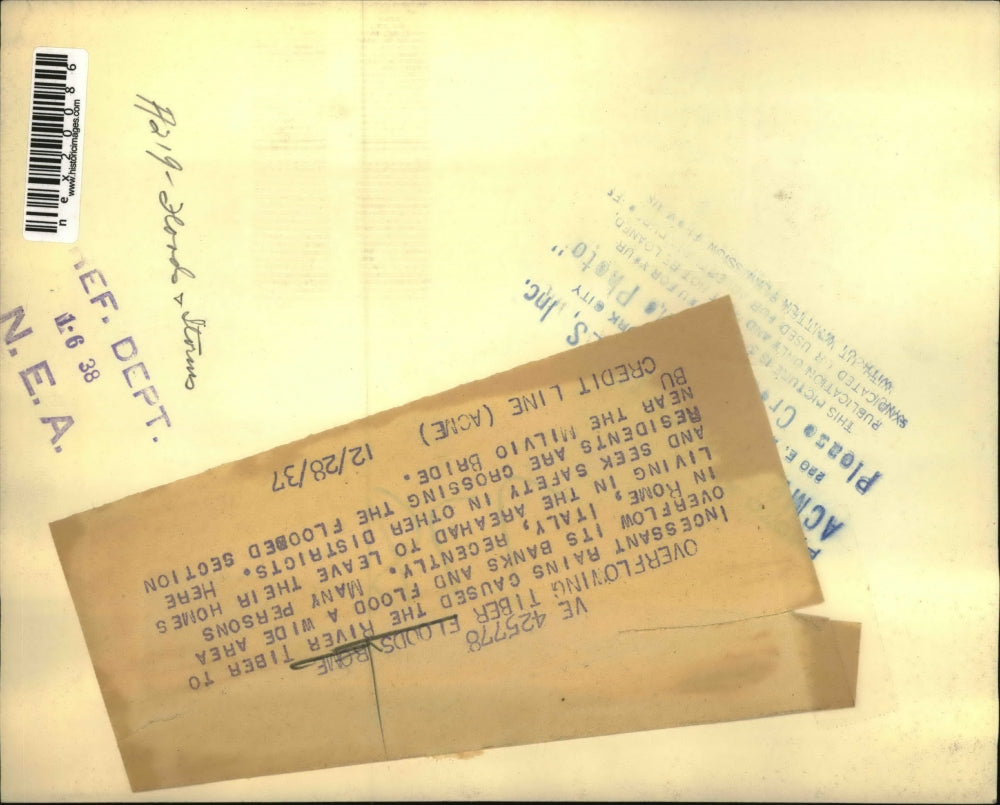 n e x 2 0 0 8 6
www.historicimages.com
H219 - Floods & Storms
REF. DEPT.
1·6 38
N. E. A.
VE 425778
OVERFLOWING TIBER FLOODS ROME
INCESSANT RAINS CAUSED THE RIVER TIBER TO
OVERFLOW ITS BANKS AND FLOOD A WIDE AREA
IN ROME, ITALY, RECENTLY. MANY PERSONS
LIVING IN THE AREAHAD TO LEAVE THEIR HOMES
AND SEEK SAFETY IN OTHER DISTRICTS. HERE
RESIDENTS ARE CROSSING THE FLOODED SECTION
NEAR THE MILVIO BRIDE.
BU
CREDIT LINE (ACME) 12/28/37
220 E.
Please
THIS PICTURE IS
PUBLICATION ONLY AND
SYNDICATED OR USED FOR
WITHOUT WRITTEN PERMISSION
Photo"
, Inc.